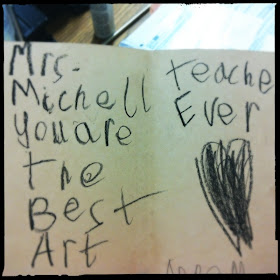 Mrs.
Michell
You are
The
Best
Art
teache
Ever